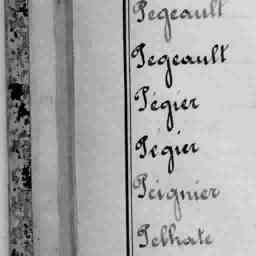 Pegeault
Pegeault
Pégier
Pégier
Peignier
Pelhate